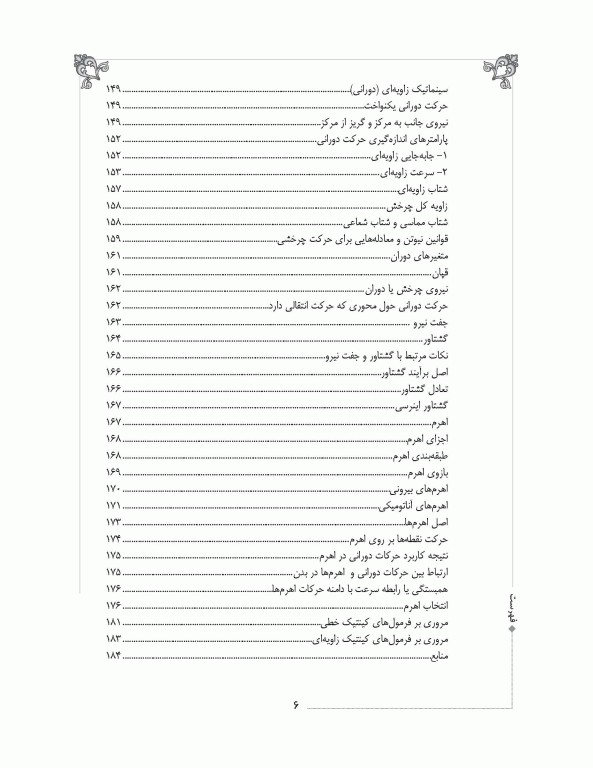 سینماتیک زاویه‌ای (دورانی)........ ۱۴۹
حرکت دورانی یکنواخت........ ۱۴۹
نیروی جانب به مرکز و گریز از مرکز........ ۱۴۹
پارامترهای اندازه‌گیری حرکت دورانی........ ۱۵۲
۱- جابه‌جایی زاویه‌ای........ ۱۵۲
۲- سرعت زاویه‌ای........ ۱۵۳
شتاب زاویه‌ای........ ۱۵۷
زاویه کل چرخش........ ۱۵۸
شتاب مماسی و شتاب شعاعی........ ۱۵۸
قوانین نیوتن و معادله‌هایی برای حرکت چرخشی........ ۱۵۹
متغیرهای دوران........ ۱۶۱
قپان........ ۱۶۱
نیروی چرخش یا دوران........ ۱۶۲
حرکت دورانی حول محوری که حرکت انتقالی دارد........ ۱۶۲
جفت نیرو ........ ۱۶۳
گشتاور........ ۱۶۴
نکات مرتبط با گشتاور و جفت نیرو........ ۱۶۵
اصل برآیند گشتاور........ ۱۶۶
تعادل گشتاور........ ۱۶۶
گشتاور اینرسی........ ۱۶۷
اهرم........ ۱۶۷
اجزای اهرم........ ۱۶۸
طبقه‌بندی اهرم........ ۱۶۸
بازوی اهرم........ ۱۶۹
اهرم‌های بیرونی........ ۱۷۰
اهرم‌های آناتومیکی........ ۱۷۱
اصل اهرم‌ها........ ۱۷۳
حرکت نقطه‌ها بر روی اهرم........ ۱۷۴
نتیجه کاربرد حرکات دورانی در اهرم........ ۱۷۵
ارتباط بین حرکات دورانی و اهرم‌ها در بدن........ ۱۷۵
همبستگی یا رابطه سرعت با دامنه حرکات اهرم‌ها........ ۱۷۶
انتخاب اهرم........ ۱۷۶
مروری بر فرمول‌های کینتیک خطی........ ۱۸۱
مروری بر فرمول‌های کینتیک زاویه‌ای........ ۱۸۳
منابع........ ۱۸۴
فهرست
۶